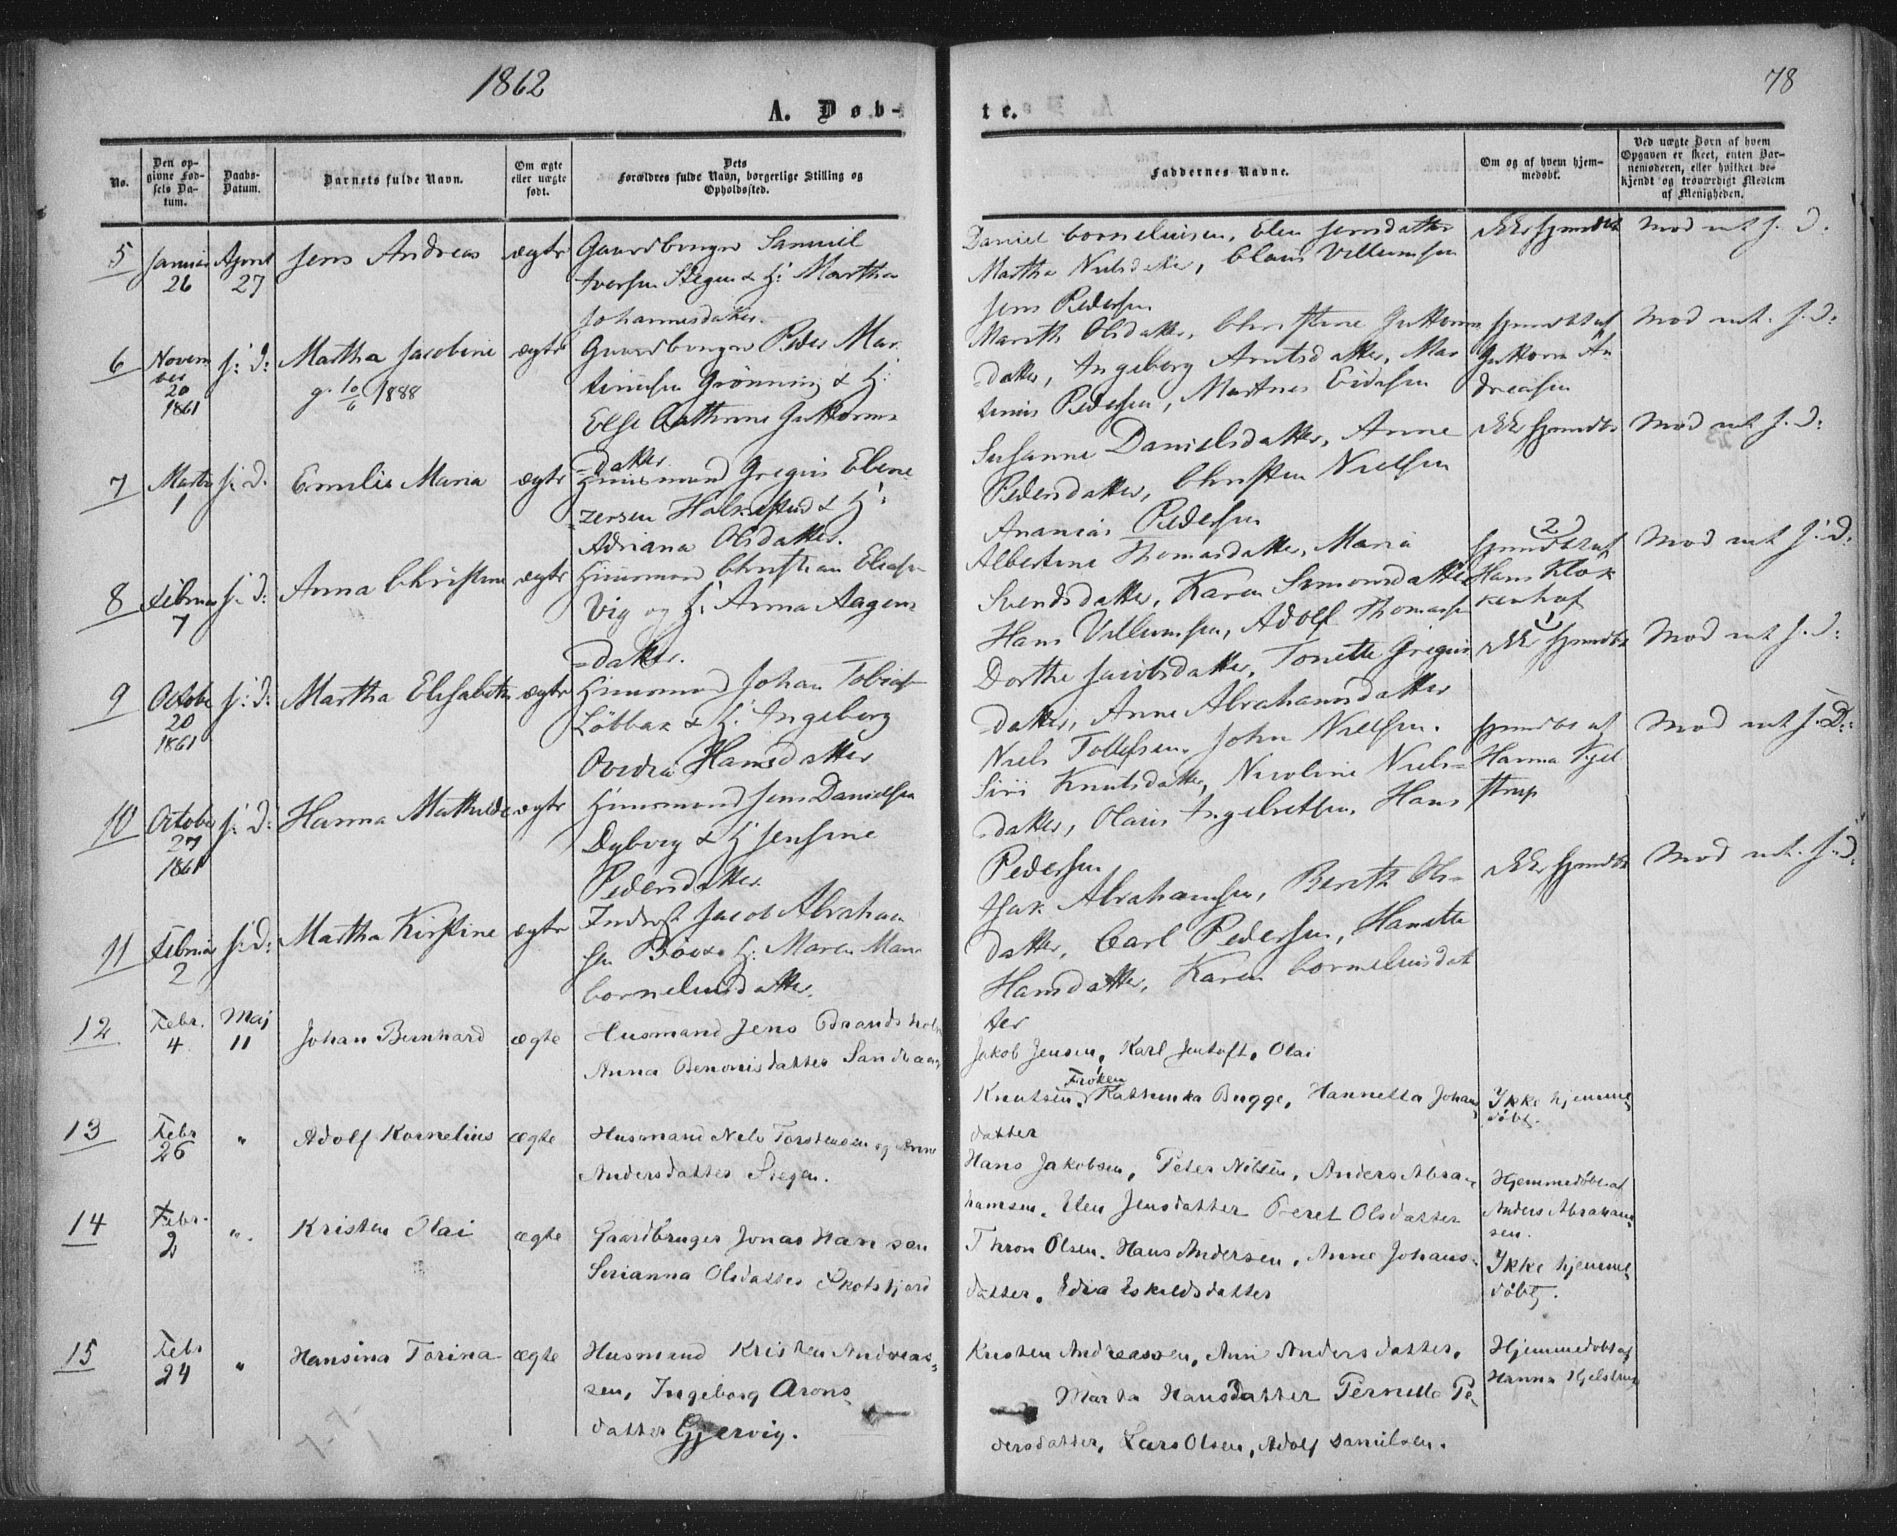 1862
78
A. Døb-
te.
No.
Den op-
givne Fød-
sels Da-
tum.
Daabs-
Datum.
Barnets fulde Navn.
Om ægte
eller uægte
født.
Dets
Forældres fulde Navn, borgerlige Stilling og
Opholdssted.
Faddernes Navne.
Om og af hvem hjem-
medøbt.
Ved uægte Børn af hvem
Opgaven er skeet, enten Bar-
nemoderen, eller hvilket be-
kjendt og troværdigt Medlem
af Menigheden.
5
Januar
26
April
27
Jens Andreas
ægte
Gaardbruger Samuel
Iversen Stegen & H: Martha
Johannesdatter.
Daniel Corneliusen, Elen Jensdatter
Martha Nielsdatter, Claus Villumsen
Jens Pedersen
Ikke hjemdbt
6
Novem
ber
20
1861
s: D:
Martha Jacobine
g. 10/6 1888
ægte
Gaardbruger Peder Mar
tinusen Grønning & H:
Else Cathrine Guttorms
datter
Mareth Olsdatter, Christine Guttorms
datter, Ingeborg Arntsdatter, Mar
tinus Pedersen, Martines Eidisen
hjemdbt af
Guttorm An
dreasen
7
Marts
1
s: D.
Emilie Maria
ægte
Huusmand Gregus Ebene
zersen Holmstad & H:
Adriana Olsdatter.
Susanne Danielsdatter, Anne
Pedersdatter, Christen Nielsen
Ananias Pedersen
Ikke hjemdbt
8
Februar
7
s: D:
Anna Christine
ægte
Huusmand Christian Eliasen
Vig og H: Anna Aagens
datter.
Albertine Thomasdatter, Maria
Svendsdatter, Karen Simonsdatter
Hans Villumsen, Adolf Thomassen
2)
hjemdbt af
Hans Klok
kerhof
9
October
20
1861
s: D:
Martha Elisabeth
ægte
Huusmand Johan Tobiasen
Løbbak & H. Ingeborg
Ovedia Hansdatter
Dorthe Jacobsdatter, Tonette Gregus
datter, Anne Abrahamsdatter
Niels Tollefsen, John Nielsen.
1)
Ikke hjemdbt
10
October
27
1861
s: D:
Hanna Mathilde
ægte
Huusmand Jens Danielsen
Dyberg & H Jensine
Pedersdatter
Siri Knutsdatter, Nicoline Niels-
datter, Olaus Ingebretsen, Hans
Pedersen
hjemdbt af
Hanna Kjel
strup
11
Februar
2
s: D:
Martha Kirstine
ægte
Inderst Jacob Abraham
sen Bøe & H: Maren Marie
Corneliusdatter.
Isak Abrahamsen, Bereth Ols-
datter, Carl Pedersen, Hanette
Hansdatter, Karen Corneliusdat
ter
Ikke hjemdbt
12
Febr.
4
Maj
11
Johan Bernhard
ægte
Husmand Jens
Anna Benonisdatter Sandvaag
Jakob Jensen, Karl Jentoft, Olai
Knutsen, Frøken Kathinka Bugge, Hannetta Johans
datter
Ikke hjemme
døbt.
13
Febr
26
"
Adolf Kornelius
ægte
Husmand Nels Torstensen og Anne
Andersdatter Stegen.
Hans Jakobsen, Peter Nilsen, Anders Abra-
hamsen, Elen Jensdatter Beret Olsdatter
Hjemmedøbt af
Anders Abraham
sen.
14
Febr.
2
"
Kristen Olai
ægte
Gaardbruger Jonas Hansen
Serianna Olsdatter Skotsfjord
Thron Olsen, Hans Andersen, Anne Johans-
datter, Edia Eskildsdatter
Ikke hjemme
døbt.
15
Febr
24
"
Hansina Torina
ægte
Husmand Kristen Andreas-
sen, Ingeborg Arons
datter Gjervig.
Kristen Andreassen, Ann Andersdatter,
Marta Hansdatter Pernelle Pe-
dersdatter, Lars Olsen, Adolf Danielsen.
Hjemmedøbt af
Hanna Hjelstrup